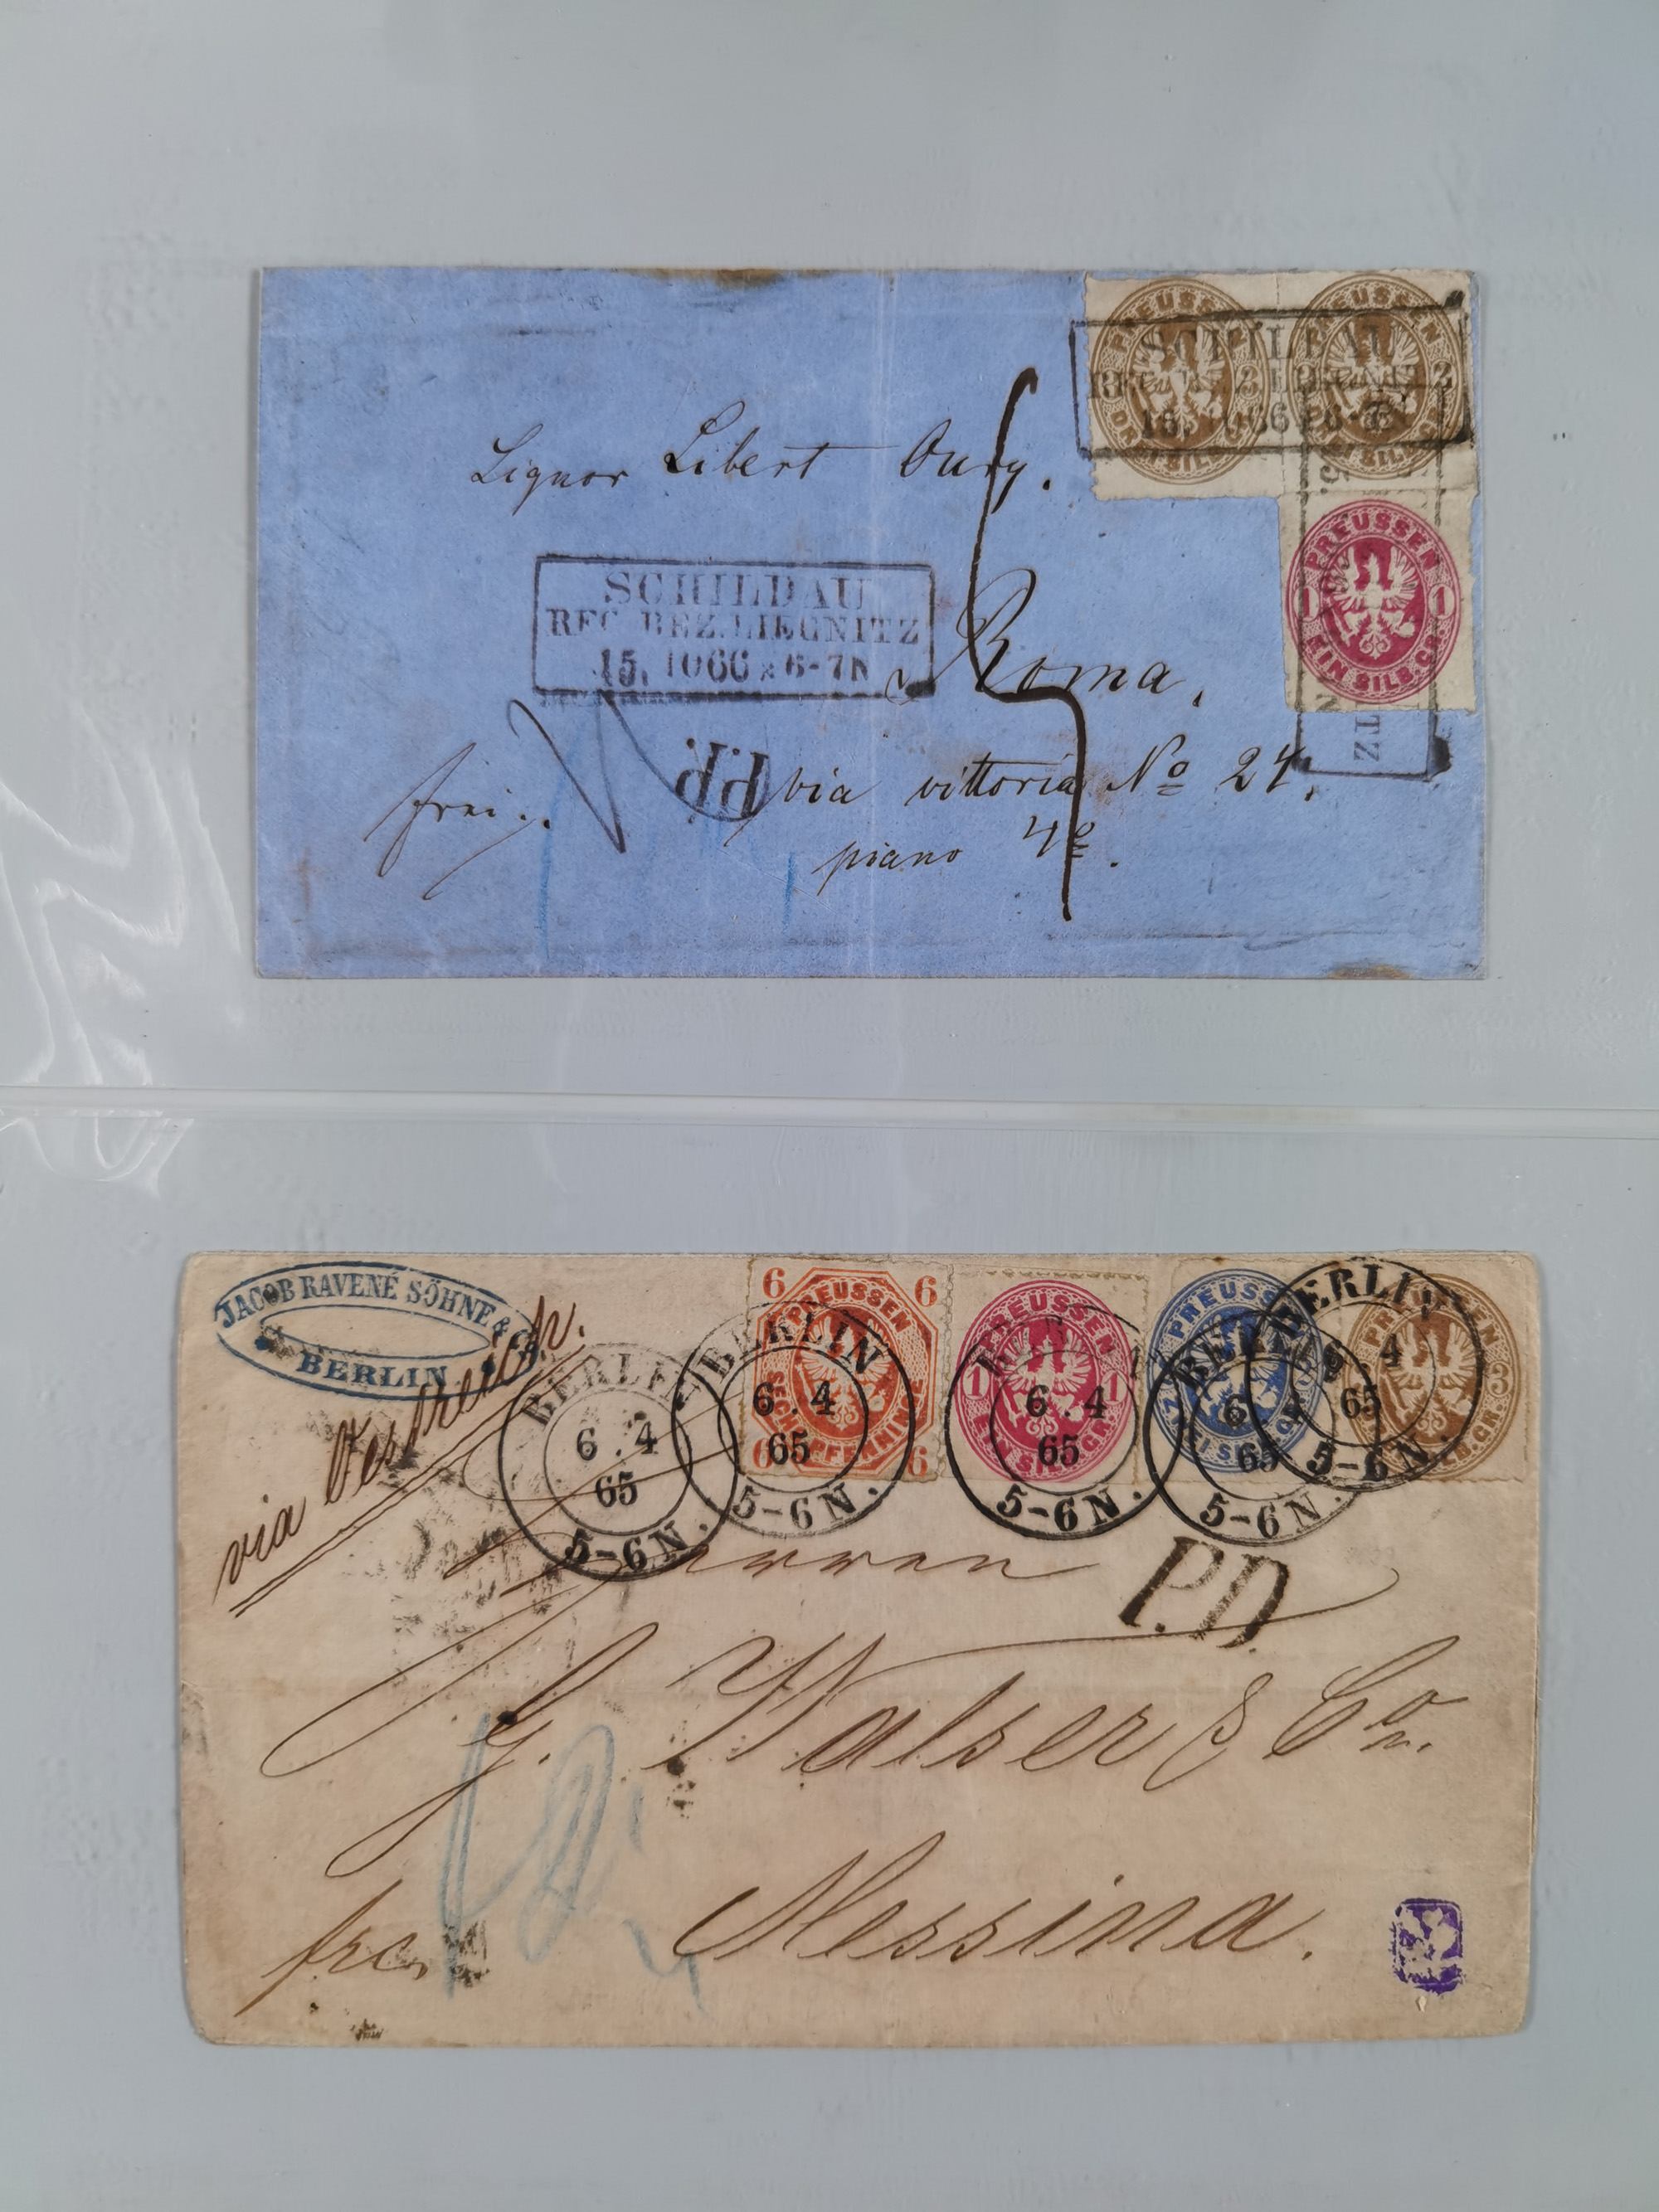 PREUSSEN
3 3
DREI SILB.GR.
PREUSSEN
3 3
DREI SILB.GR.
SCHILDAU
REG. BEZ. LIEGNITZ
15. 10 66 * 6-7N
Signor Libert
PREUSSEN
1 1
EIN SILB.GR.
SCHILDAU
REG. BEZ. LIEGNITZ
15. 10 66 * 6-7N
Roma.
TZ
P.D.
via vittoria No 24.
frei.
piano 4o.
JACOB RAVENÉ SÖHNE & Co.
BERLIN
via Oestreich.
6 6
PREUSSEN
SECHS PFENNINGE
6 6
PREUSSEN
1 1
EIN SILB.GR.
PREUSSEN
2
ZWEI SILB.GR.
PREUSSEN
3
DREI SILB.GR.
BERLIN
6.4
65
5-6N.
BERLIN
6.4
65
5-6N.
6.4
65
5-6N.
BERLIN
6
65
5-6N.
BERLIN
6.4
65
5-6N.
Herren
P.D.
G. Walser & Co.
Messina.
frco.